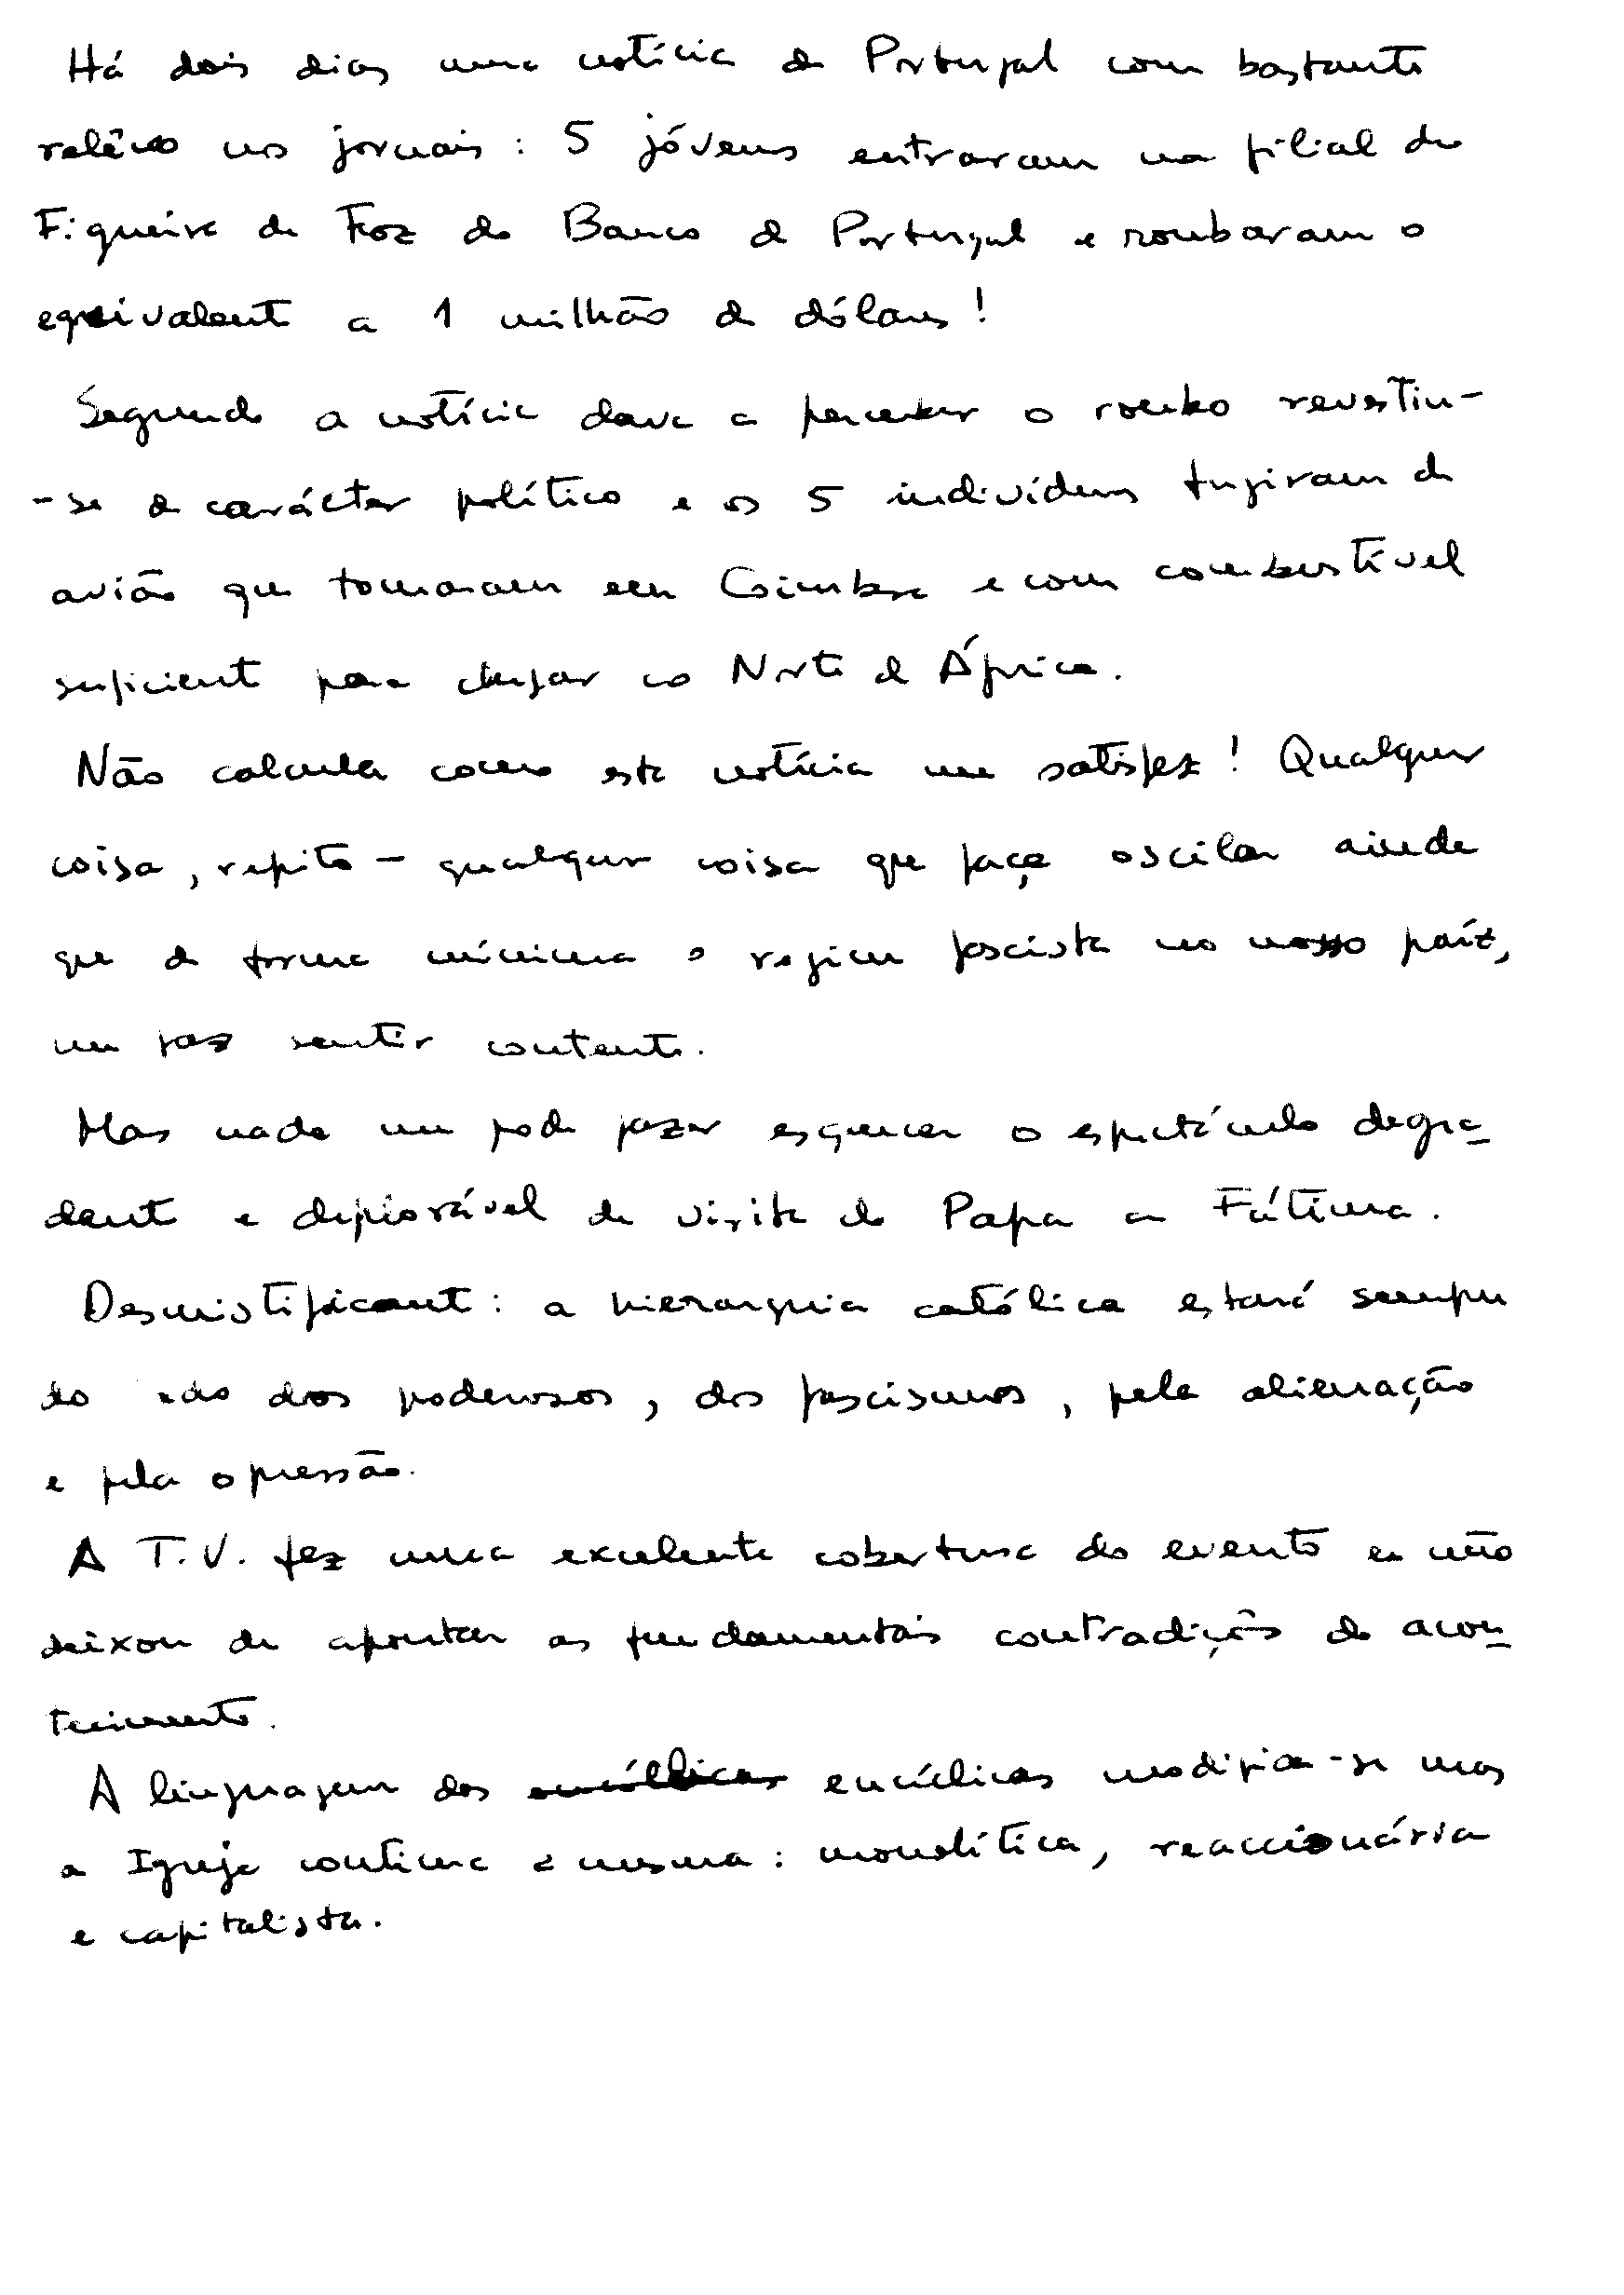 Há dois dias uma notícia de Portugal com bastante
relêvo nos jornais: 5 jóvens entraram na filial da
Figueira da Foz do Banco de Portugal e roubaram o
equivalente a 1 milhão de dólares!
Segundo a notícia dava a perceber o roubo revestiu-
-se de carácter político e os 5 indivíduos fugiram de
avião que tomaram em Coimbra e com combustível
suficiente para chegar ao Norte de África.
Não calcula como esta notícia me satisfez! Qualquer
coisa, repito - qualquer coisa que faça oscilar ainda
que de forma mínima o regime fascista no nosso país,
me faz sentir contente.
Mas nada me pode fazer esquecer o espectáculo degra-
dante e deplorável da visita do Papa a Fátima.
Desmistificante: a hierarquia católica estará sempre
do lado dos poderosos, dos fascismos, pela alienação
e pela opressão.
A T.V. fez uma excelente cobertura do evento e não
deixou de apontar as fundamentais contradições do acon-
tecimento.
A linguagem das encíclicas modifica-se mas
a Igreja continua a mesma: monolítica, reaccionária
e capitalista.